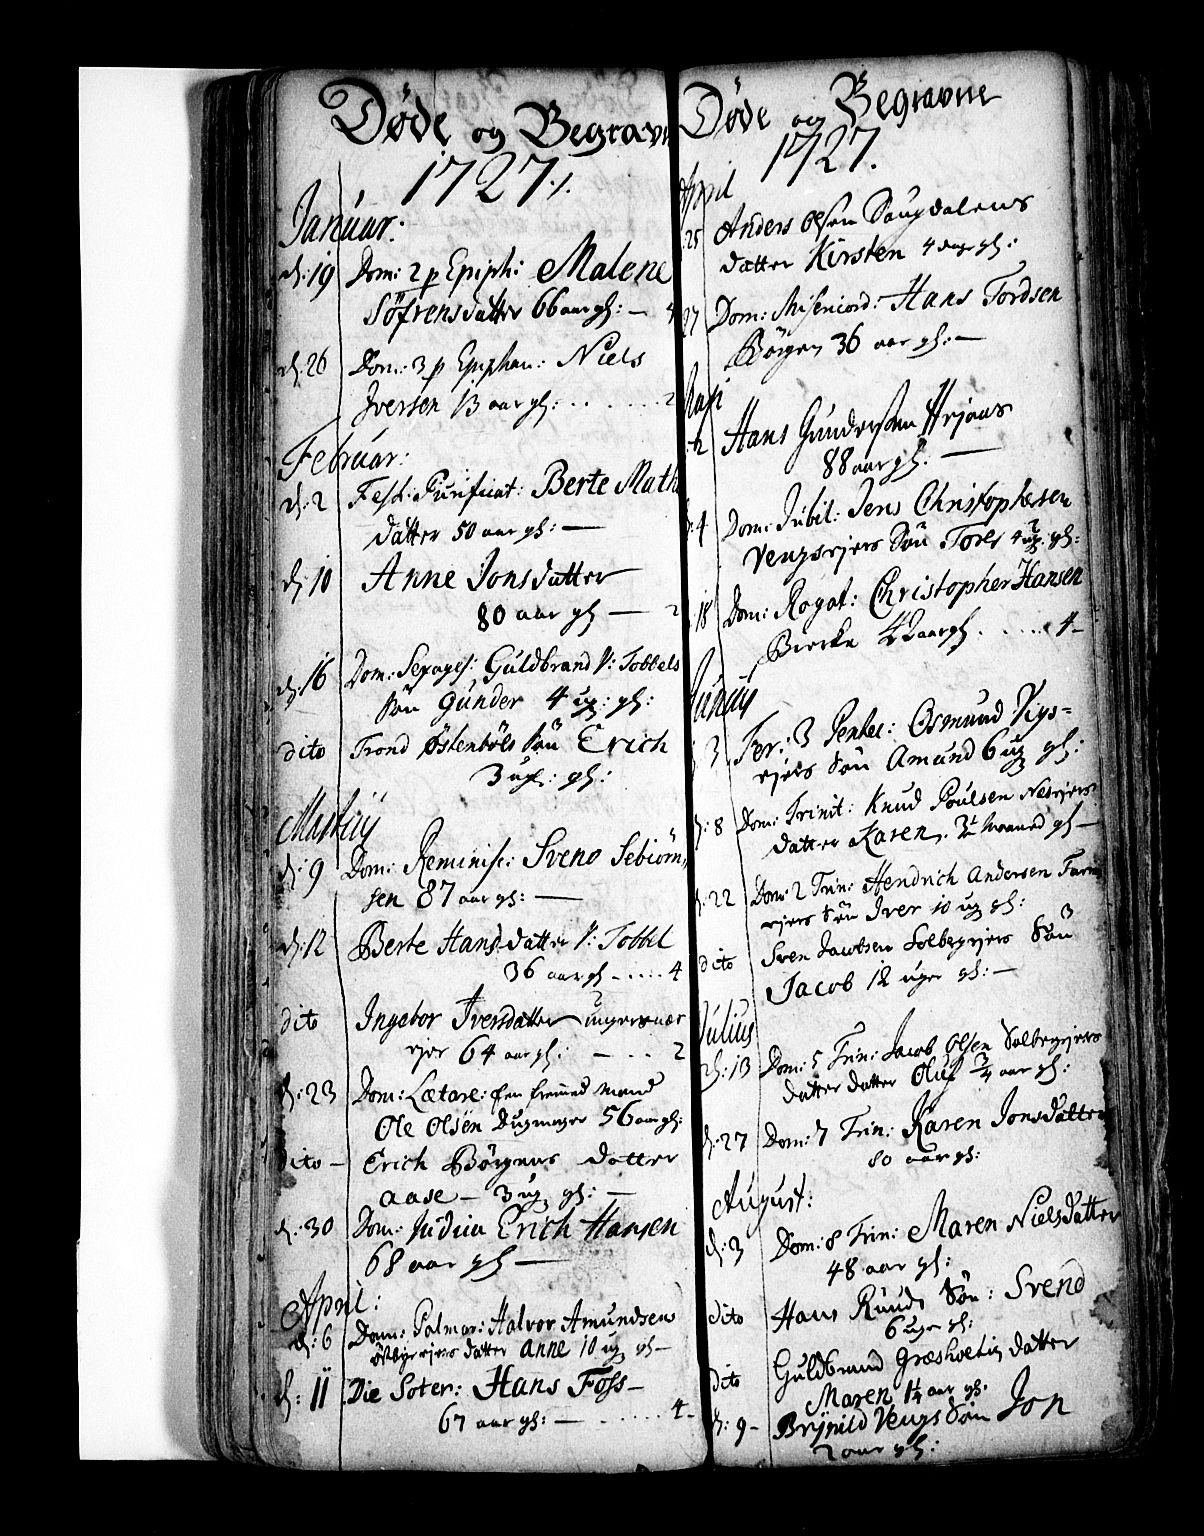 Døde og Begravn
1727 ./.
Januar:
d: 19 Dom: 2 p Epiph: Malene
Söfrensdatter 66 aar gl: — 4
d: 26 Dom: 3 p Epiphan: Niels
Iversen 13 aar gl: . . . . . 2
Februar:
d: 2 Fest: Purificat: Berte Math
datter 50 aar gl: —
d: 10 Anne Jonsdatter
80 aar gl — 2
d: 16 Dom: Sexages: Guldbrand V: Tobbels
Sön Gunder 4 ug: gl:
dito Trond Østenböls Sön Erich
3 ug: gl:
Martij
d: 9 Dom: Reminisc: Svend Sebiörn
sen 87 aar gs: —
d: 12 Berte Hansdatter V: Tobbel
36 aar gl - . . . . 4
dito Ingebor Iversdatter
rjer 64 aar gl: — . . . 2
d: 23 Dom: Lætare: En fremed Mand
Ole Olsen Dugmager 56 aar gl:
dito — Erich Börgens datter
Aase — 3 ug gl: —
d: 30 Dom: Judica Erich Hansen
68 aar gl —
April:
d: 6 Dom: Palmar: Halvor Amundsens
datter Anne 10 ug gl —
d: 11 Die Soter: Hans Foss —
67 aar gs: — . . . . . 4 -
Døde og Begravne
1727.
April
25 Anders Olsen Saugdalens
datter Kirsten 4 dage gl:
27 Dom: Misericord: Hans Tordsen
Börgen 36 aar gl: —
Maji
2 Hans Gundersen
88 aar gl. —
: 4 Dom: Jubil: Jens Christophersen
Vengsrjers Sön Tores 4 ug. gl:
: 18 Dom: Rogat: Christopher Hansen
Biercke 42 aar gl . . . . . 4 -
Junij
: 3 Fer: 3 Pentec: Osmund Vigs=
rjets Sön Amund 6 ug gl:
d: 8 Dom: Trinit: Knud Poulsen Nesrjers
datter Karen, 3½ Maaned gl —
: 22 Dom: 2 Trin: Hendrich Andersen
rjers Sön Iver 10 ug gl:
dito Sven Jacobsen Solbergrjers Sön
Jacob 12 uger gl: —
Julius
d: 13 Dom: 5 Trin: Jacob Olsen Solbergrjers
datter datter Oluf ¾ aar gl:
d: 27 Dom: 7 Trin: Karen Jonsdatter
80 aar gs:
August:
d: 3 Dom: 8 Trin: Maren Nielsdatter
48 aar gl:
dito Hans Ruuds Sön: Svend
6 uger gl:
dito Guldbrand Græsholtin datter
Maren 1¼ aar gl.
d: 9 - Brynild Vengs Sön Jon
2 aar gl: